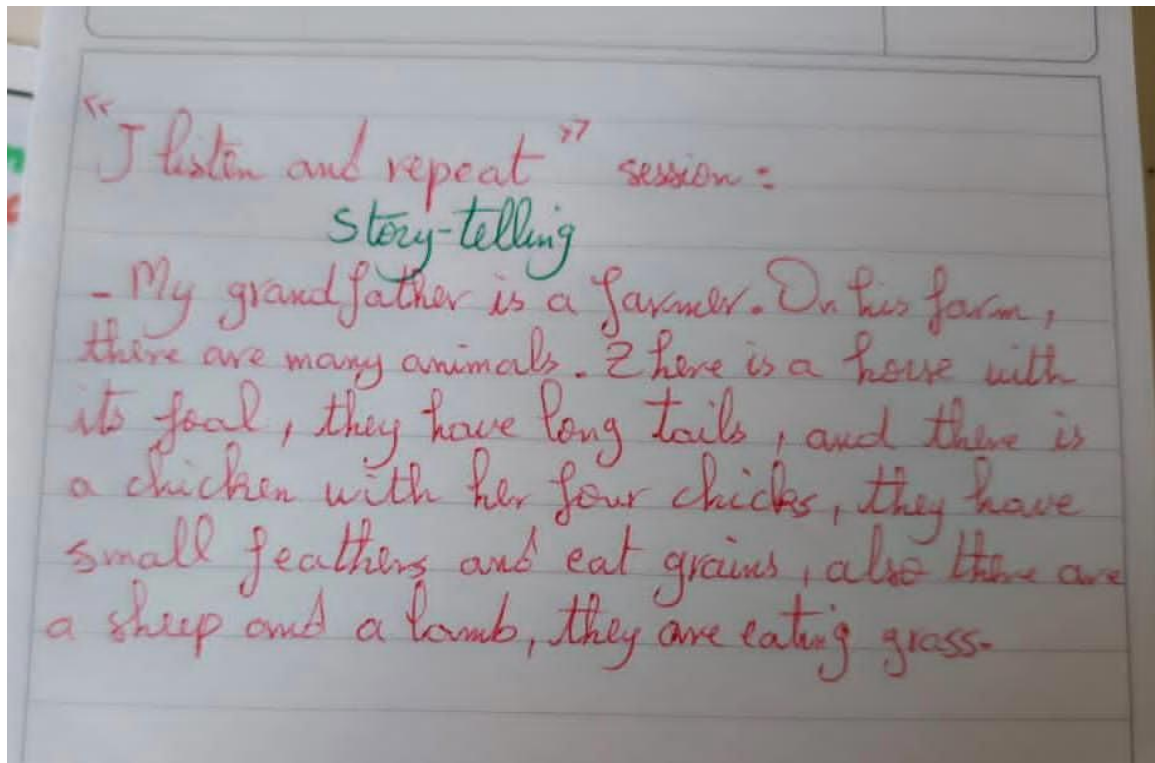 "I listen and repeat" session :
Story-telling
- My grandfather is a farmer. On his farm,
there are many animals. There is a horse with
its foal, they have long tails, and there is
a chicken with her four chicks, they have
small feathers and eat grains, also there are
a sheep and a lamb, they are eating grass.